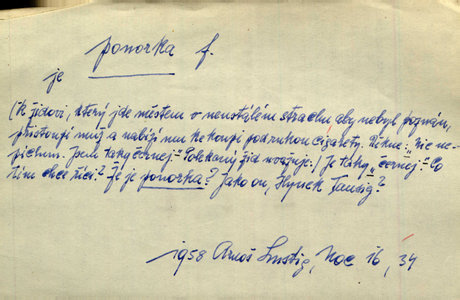 ponorka f.
je
(K židovi, který jde městem v neustálém strachu aby nebyl poznán,
přistoupí muž a nabízí mu ke koupi pod rukou cigarety. Řekne: „Nic ne-
platím. Jsem taky černej." Polekaný žid uvažuje:) Je taky „černej". Co
tím chce říci? Že je ponorka? Jako on, Hynek Tausig?
1958 Arnošt Lustig, Noc 16, 34